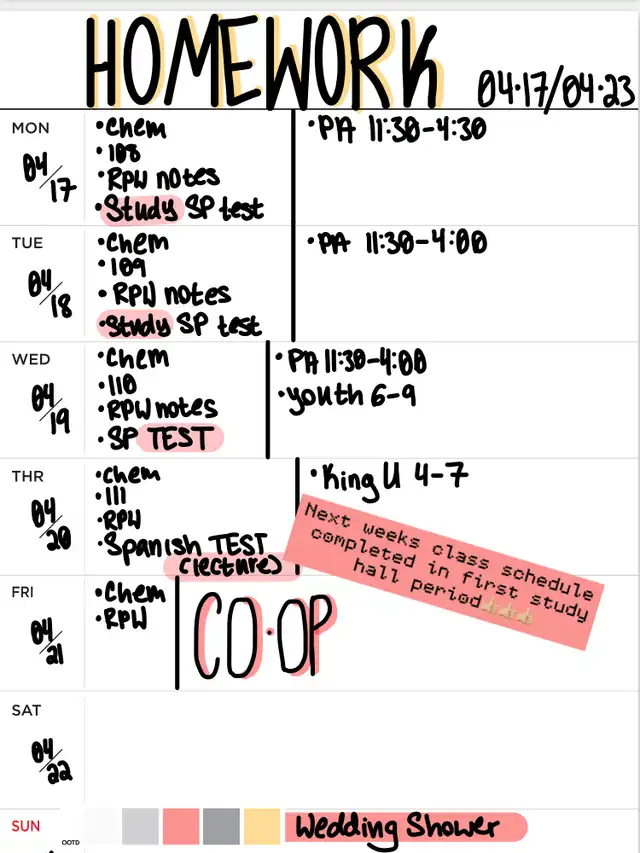 HOMEWORK 04.17/04.23
MON
04/17
•Chem
•108
•RPW notes
•Study SP test
•PA 11:30-4:30
TUE
04/18
•Chem
•109
•RPW notes
•Study SP test
•PA 11:30-4:00
WED
04/19
•Chem
•110
•RPW notes
•SP TEST
•PA 11:30-4:00
•youth 6-9
THR
04/20
•Chem
•111
•RPW
•Spanish TEST
(lecture)
•King U 4-7
Next weeks class schedule
completed in first study
hall period👍🏼👍🏼👍🏼
FRI
04/21
•Chem
•RPW
CO·OP
SAT
04/22
SUN
OOTD
Wedding Shower